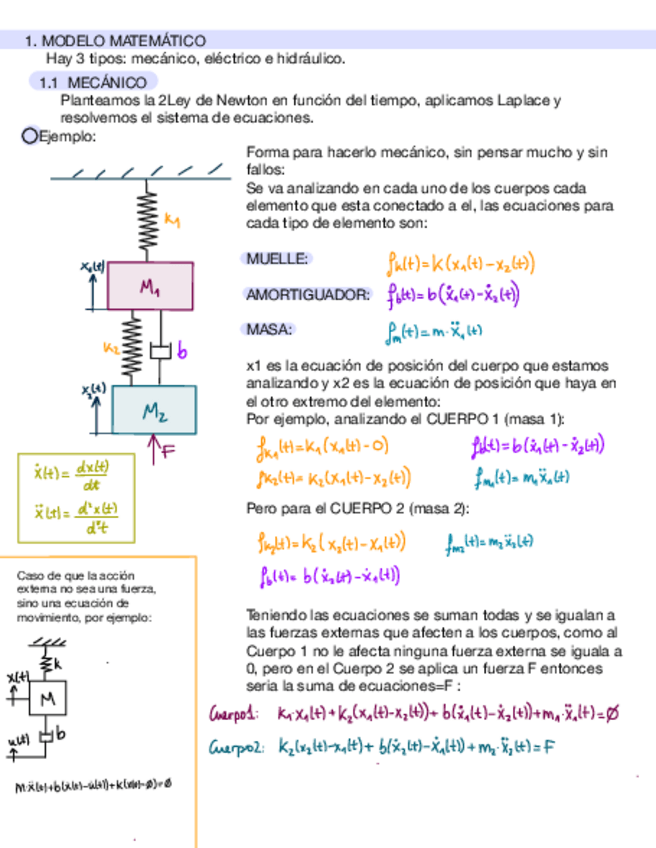 1. MODELO MATEMÁTICO
Hay 3 tipos: mecánico, eléctrico e hidráulico.
1.1 MECÁNICO
Planteamos la 2Ley de Newton en función del tiempo, aplicamos Laplace y
resolvemos el sistema de ecuaciones.
Ejemplo:
Forma para hacerlo mecánico, sin pensar mucho y sin
fallos:
Se va analizando en cada uno de los cuerpos cada
elemento que esta conectado a el, las ecuaciones para
cada tipo de elemento son:
K₁
x₁(t)
M₁
K₂
b
x₂(t)
M₂
F
MUELLE: fₖ(t)=k(x₁(t)-x₂(t))
AMORTIGUADOR: f_b(t)=b(ẋ₁(t)-ẋ₂(t))
MASA: fₘ(t)=m·ẍ₁(t)
x1 es la ecuación de posición del cuerpo que estamos
analizando y x2 es la ecuación de posición que haya en
el otro extremo del elemento:
Por ejemplo, analizando el CUERPO 1 (masa 1):
fₖ₁(t)=K₁(x₁(t)-0) f_b(t)=b(ẋ₁(t)-ẋ₂(t))
fₖ₂(t)=K₂(x₁(t)-x₂(t)) fₘ₁(t)=m₁ẍ₁(t)
Pero para el CUERPO 2 (masa 2):
fₖ₂(t)=K₂(x₂(t)-x₁(t)) fₘ₂(t)=m₂ẍ₂(t)
f_b(t)=b(ẋ₂(t)-ẋ₁(t))
ẋ(t)=dx(t)/dt
ẍ(t)=d²x(t)/d²t
Caso de que la acción
externa no sea una fuerza,
sino una ecuación de
movimiento, por ejemplo:
K
x(t)
M
u(t)
b
M·ẍ(t)+b(ẋ(t)-u̇(t))+K(x(t)-Ø)=Ø
Teniendo las ecuaciones se suman todas y se igualan a
las fuerzas externas que afecten a los cuerpos, como al
Cuerpo 1 no le afecta ninguna fuerza externa se iguala a
0, pero en el Cuerpo 2 se aplica un fuerza F entonces
seria la suma de ecuaciones=F :
Cuerpo1: K₁·x₁(t)+K₂(x₁(t)-x₂(t))+b(ẋ₁(t)-ẋ₂(t))+m₁·ẍ₁(t)=Ø
Cuerpo2: K₂(x₂(t)-x₁(t)+b(ẋ₂(t)-ẋ₁(t))+m₂·ẍ₂(t)=F